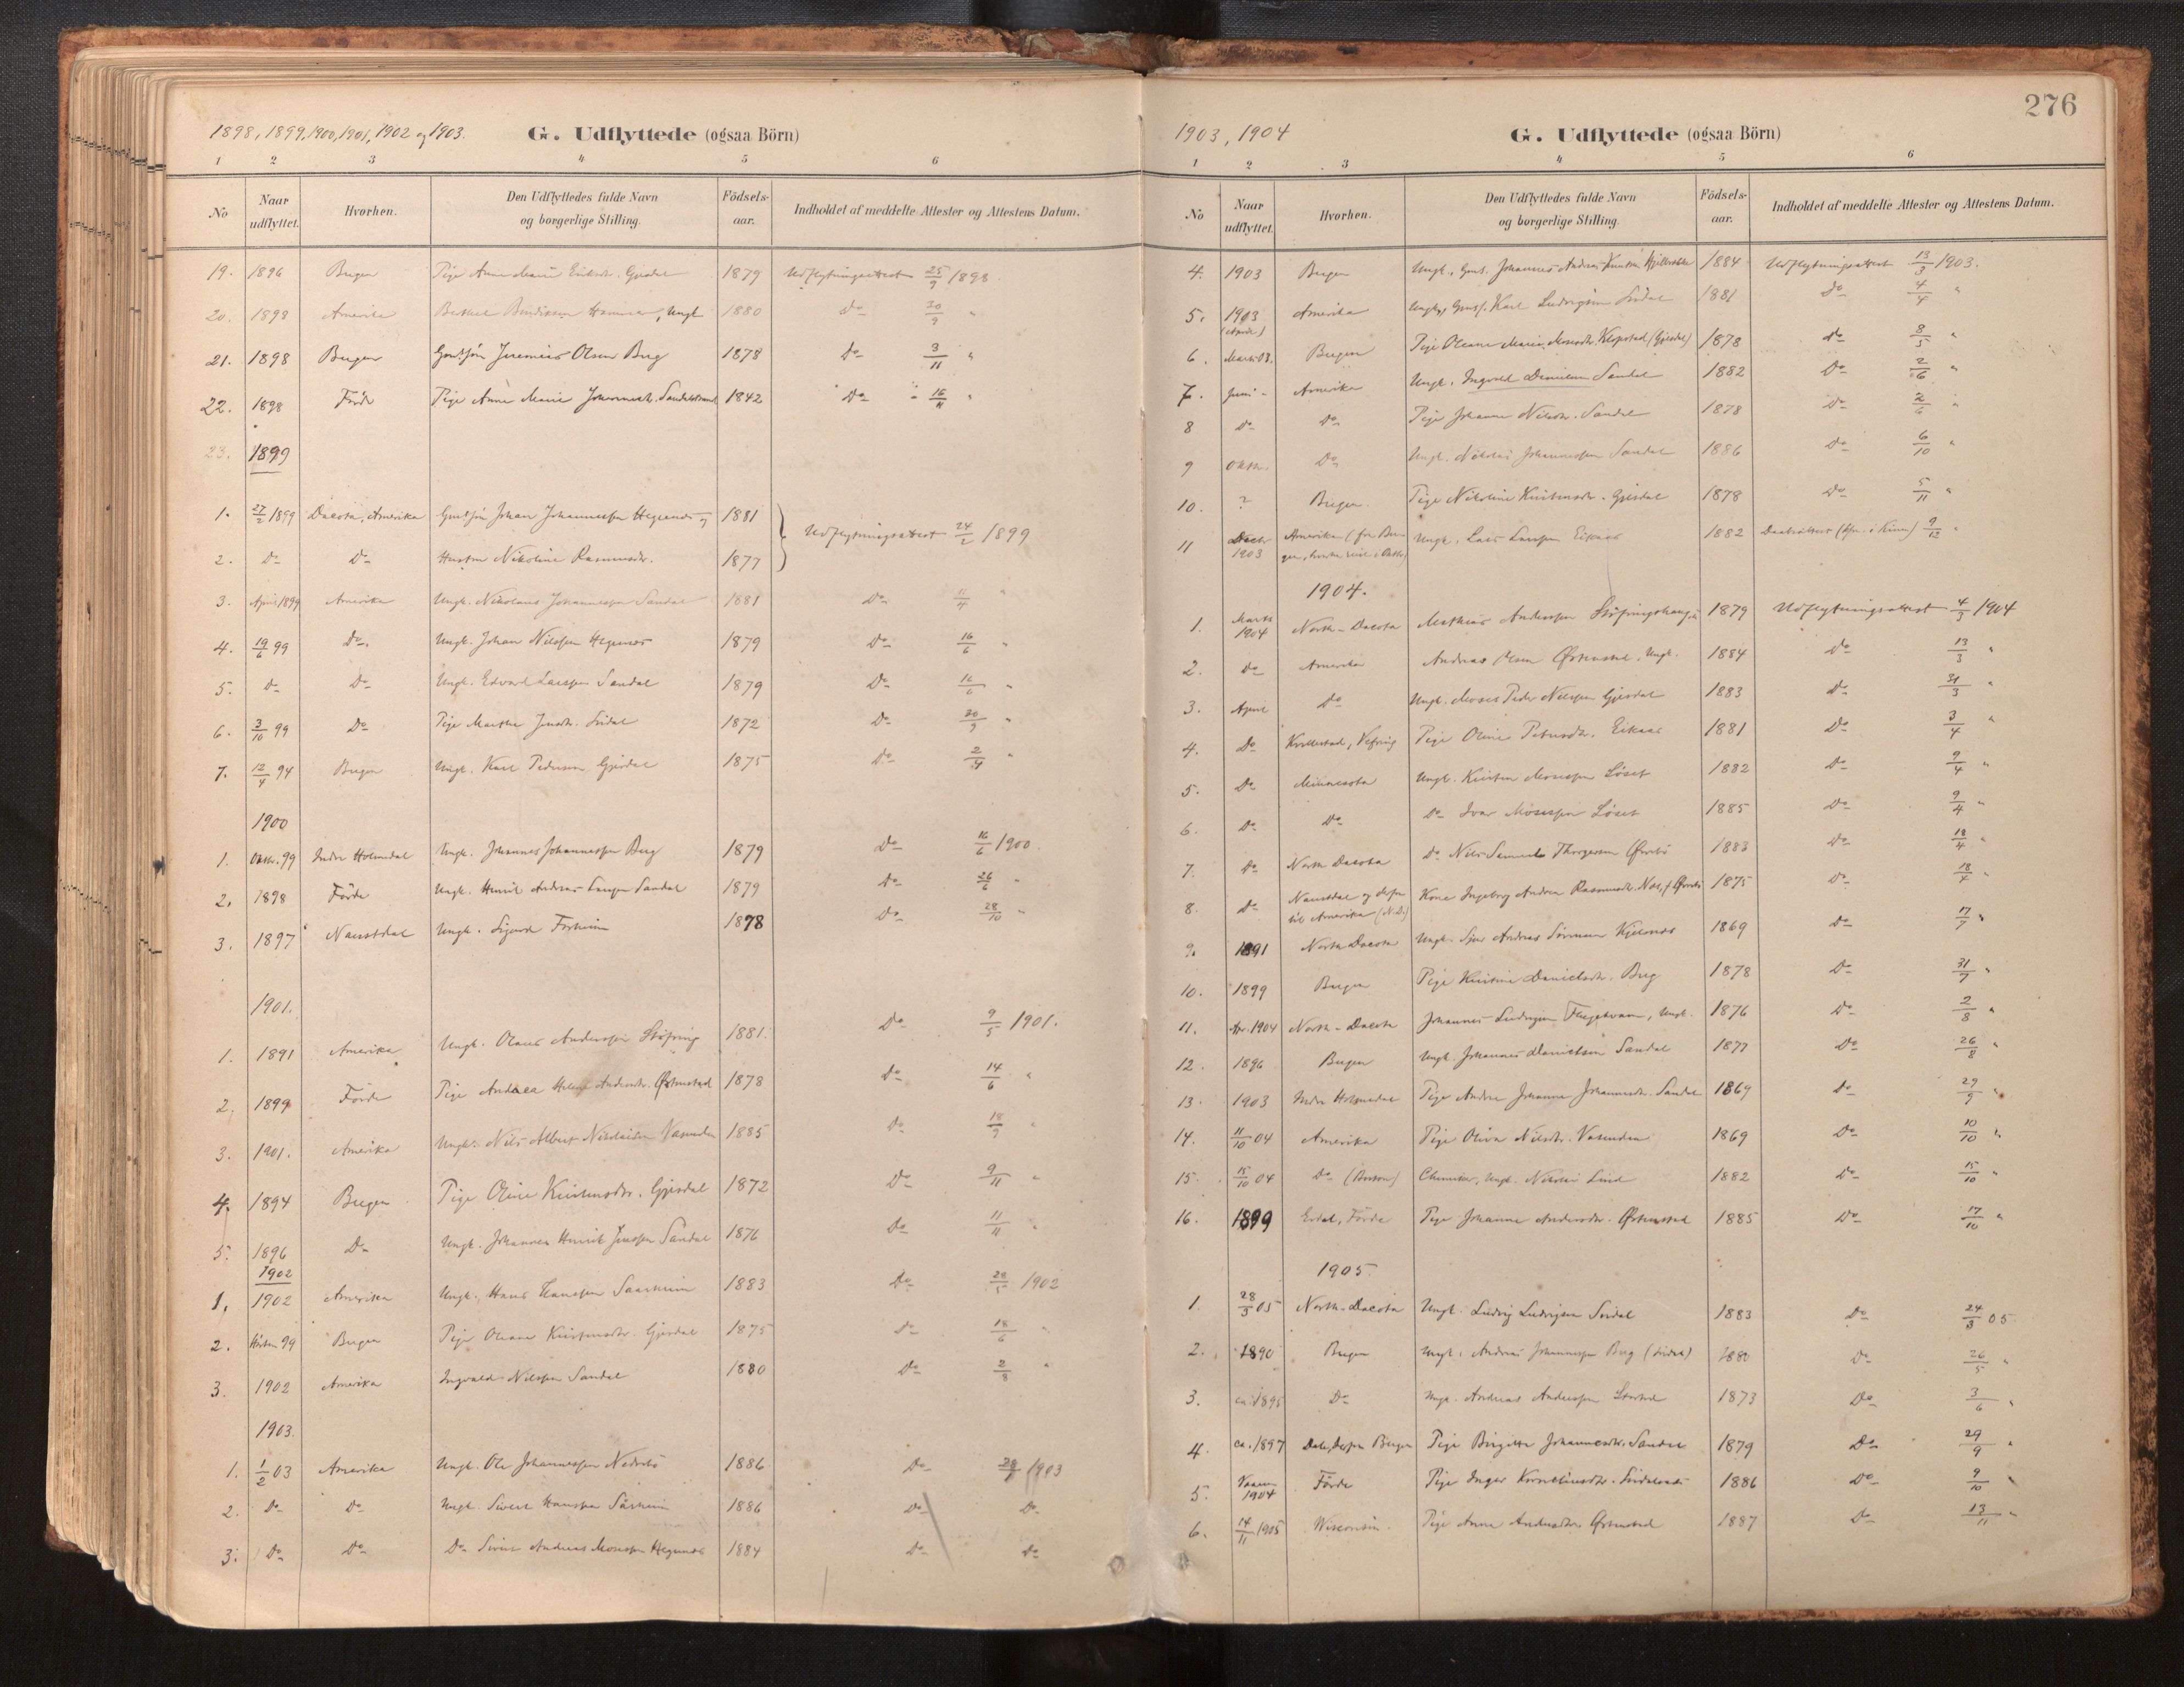 1898, 1899, 1900, 1901, 1902 og 1903. G. Udflyttede (ogsaa Börn)
1 2 3 4 5 6
No Naar udflyttet. Hvorhen. Den Udflyttedes fulde Navn og borgerlige Stilling. Födsels-aar. Indholdet af meddelte Attester og Attestens Datum.
19. 1896 Bergen Pige Anne Marie Eriksdr. Gjesdal 1879 Udflytningsattest 25/9 1898.
20. 1898 Amerika Berthel Bendiksen Hammer, Ungk. 1880 Do 20/9 "
21. 1898 Bergen Gmd. Jeremias Olsen Berg 1878 Do 3/11 "
22. 1898 Förde Pige Anne Marie Johannesdr. Sandalstrand 1842 Do 16/11 "
23. 1899
1. 27/2 1899 Dacota, Amerika Johan Johannessen Hegrenes og 1881 Udflytningsattest 24/2 1899
2. Do Do Hustru Nikoline Rasmusdr. 1877
3. April 1899 Amerika Ungk. Nikolaus Johannessen Sandal 1881 Do 11/4 "
4. 19/6 99 Do Ungk. Johan Nilssen Hegrenes 1879 Do 16/6 "
5. Do Do Ungk. Edvard Larssen Sandal 1879 Do 16/6 "
6. 3/10 99 Do Pige Marthe Jensdr. Svidal 1872 Do 30/9 "
7. 12/4 94 Bergen Ungk. Karl Pedersen Gjesdal 1875 Do 2/11 "
1900
1. Oktbr. 99 Indre Holmedal Ungk. Johannes Johannessen Berg 1879 Do 16/6 1900.
2. 1898 Förde Ungk. Henrik Andreas Larssen Sandal 1879 Do 26/6 "
3. 1897 Naustdal Ungk. Sigurd Forheim 1878 Do 28/10 "
1901.
1. 1891 Amerika Ungk. Olaus Anderssen Støfring 1881. Do 9/5 1901.
2. 1899 Förde Pige Andrea Helene Andersdr. Ørstenstad 1878 Do 14/6 "
3. 1901. Amerika Ungk. Nils Albert Nikolaisen Vasenden 1885 Do 18/9 "
4. 1894 Bergen Pige Oline Kristensdr. Gjesdal 1872 Do 9/11 "
5. 1896 Do Ungk. Johannes Henrik Jenssen Sandal 1876 Do 11/11 "
1902
1. 1902 Amerika Ungk. Hans Hanssen Saarheim 1883 Do 28/5 1902
2. Høsten 99 Bergen Pige Oleane Kristensdr. Gjesdal 1875 Do 18/6 "
3. 1902 Amerika Ingvald Nilssen Sandal 1880 Do 2/8 "
1903.
1. 1/2 03 Amerika Ungk. Ole Johannessen Nedrebø 1886 Do 28/1 1903
2. Do Do Ungk. Sivert Hanssen Sårheim 1886 Do Do
3. Do Do Do Sivert Andreas Mosessen Hegrenes 1884 Do Do
276
1903, 1904 G. Udflyttede (ogsaa Börn)
1 2 3 4 5 6
No Naar udflyttet. Hvorhen. Den Udflyttedes fulde Navn og borgerlige Stilling. Födsels-aar. Indholdet af meddelte Attester og Attestens Datum.
4. 1903 Bergen Ungk., Johannes Andreas Knutsen 1884 Udflytningsattest 13/3 1903.
5. 1903 (April) Amerika Ungk., Karl Ludvigsen Svidal 1881 do 4/4 "
6. Marts 03. Bergen Pige Oleane Marie Mosesdr. Klopstad (Gjesdal) 1878 do 8/5 "
7. Juni - Amerika Ungk. Ingvald Danielsen Sandal 1882 Do 2/6 "
8 Do Do Pige Johanne Nilsdr. Sandal 1878 Do 2/6 "
9 Oktbr. Do Ungk. Nikolai Johannessen Sandal 1886 Do 6/10 "
10. ? Bergen. Pige Nikoline Kristensdr. Gjesdal 1878 Do 5/11 "
11 Decbr 1903 Amerika (fra Bergen, Ungk. Lars Larssen Eikaas 1882 Daabsattest 9/12 "
1904.
1. Marts 1904 North-Dacota Mathias Anderssen Støfringshaugen 1879 Udflytningsattest 4/3 1904
2. Do Amerika Andreas Olsen Ørstenstad. Ungk. 1884 Do 13/3 "
3. April Do Ungk. Moses Peder Nilssen Gjesdal 1883 Do 31/3 "
4. Do Kvellestad, Vefring Pige Oline Petersdr. Eikaas 1881 Do 3/4 "
5. Do Minnesota Ungk. Kristen Mosessen Løset 1882 Do 9/4 "
6. Do Do Do Ivar Mosessen Løset 1885 Do 9/4 "
7. Do North Dacota Do Nils Samuel Thorgersen Øvrebø 1883 Do 18/4 "
8. Do Naustdal og derfra til Amerika (N.D.) Kone Ingeborg Andrea Rasmusdr. Øvrebø 1875 Do 18/4 "
9. 1891 North Dacota Ungk. Sjur Andreas Kjelsnes 1869 Do 17/7 "
10. 1899 Bergen Pige Kristine Danielsdr. Berg 1878 Do 31/7 "
11. Apr. 1904 North-Dacota Johannes Ludvigsen Flugekvam, Ungk. 1876 Do 2/8 "
12. 1896 Bergen Ungk. Johannes Danielsen Sandal 1877 Do 26/8 "
13. 1903 Indre Holmedal Pige Andrea Johanna Johannesdr. Sandal 1869 Do 29/9 "
14. 11/10 04 Amerika Pige Oliva Nilsdr. Vasenden 1869 Do 10/10 "
15. 15/10 04 Do (Boston) Chemiker, Ungk. Nikolai Lind 1882 Do 15/10 "
16. 1899 Erdal, Förde Pige Johanne Andersdr. Ørstenstad 1885 Do 17/10 "
1905.
1. 28/3 05 North-Dacota Ungk. Ludvig Ludvigsen Svidal 1883 Do 24/3 05
2. 1890 Bergen Ungk. Andreas Johannessen Berg (Svidal) 1880 Do 26/5 "
3. ca. 1895 Do Ungk. Andreas Anderssen 1873 Do 3/6 "
4. ca. 1897 Dale, derfra Bergen Pige Birgitte Johannesdr. Sandal 1879 Do 29/9 "
5. Vaaren 1904 Förde Pige Inger Korneliusdr. 1886 Do 9/10 "
6. 14/11 1905 Wisconsin. Pige Anna Andersdr. Ørstenstad 1887 Do 13/11 "